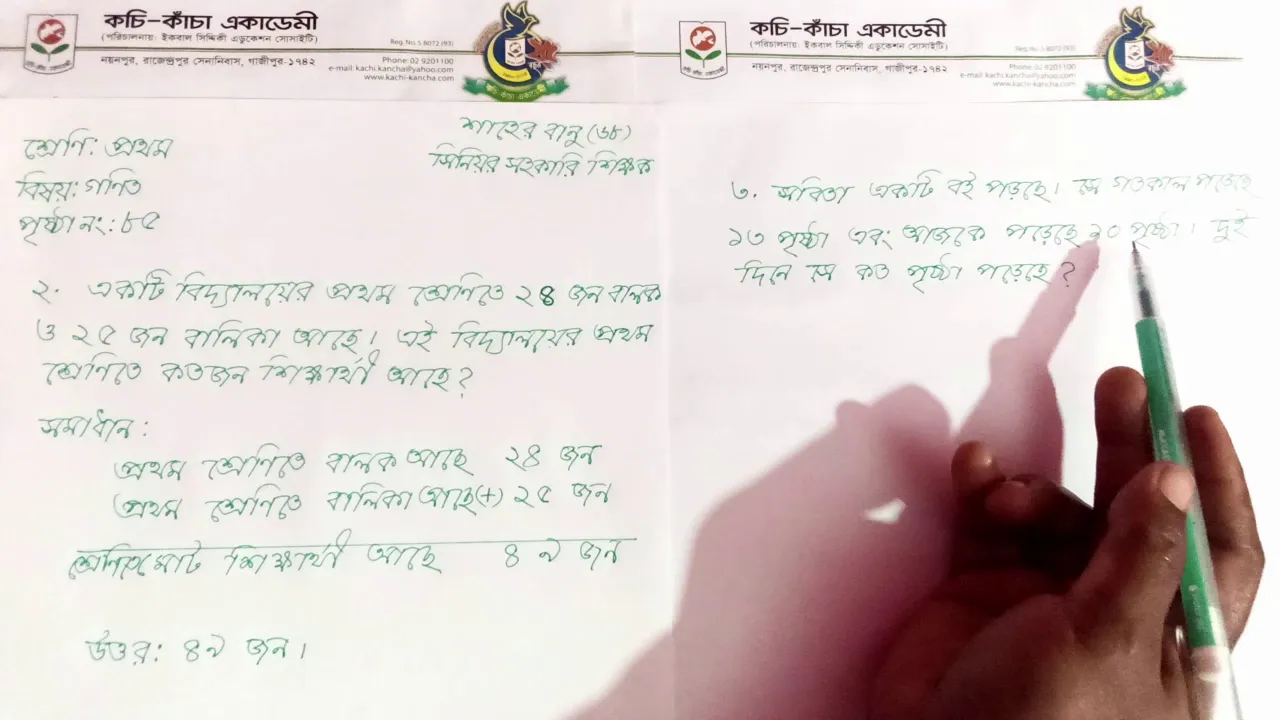 কচি-কাঁচা একাডেমী
(পরিচালনায়: ইকবাল সিদ্দিকী এডুকেশন সোসাইটি)
নয়নপুর, রাজেন্দ্রপুর সেনানিবাস, গাজীপুর-১৭৪২
Reg. No. S 8072 (93)
Phone: 02 9201100
e-mail: kachi.kancha@yahoo.com
www.kachi-kancha.com
শ্রেণি: প্রথম
বিষয়: গণিত
পৃষ্ঠা নং: ৮৫
শাহের বানু (৬৮)
সিনিয়র সহকারি শিক্ষক
২. একটি বিদ্যালয়ের প্রথম শ্রেণিতে ২৪ জন বালক
ও ২৫ জন বালিকা আছে। এই বিদ্যালয়ের প্রথম
শ্রেণিতে কতজন শিক্ষার্থী আছে?
সমাধান:
প্রথম শ্রেণিতে বালক আছে ২৪ জন
প্রথম শ্রেণিতে বালিকা আছে(+) ২৫ জন
শ্রেণিতে মোট শিক্ষার্থী আছে ৪৯ জন
উত্তর: ৪৯ জন।
কচি-কাঁচা একাডেমী
(পরিচালনায়: ইকবাল সিদ্দিকী এডুকেশন সোসাইটি)
নয়নপুর, রাজেন্দ্রপুর সেনানিবাস, গাজীপুর-১৭৪২
Reg. No. S 8072 (93)
Phone: 02 9201100
e-mail: kachi.kancha@yahoo.com
www.kachi-kancha.com
৩. কবিতা একটি বই পড়ছে। সে গতকাল পড়েছে
১৩ পৃষ্ঠা এবং আজকে পড়েছে ১০ পৃষ্ঠা। দুই
দিনে সে কত পৃষ্ঠা পড়েছে?